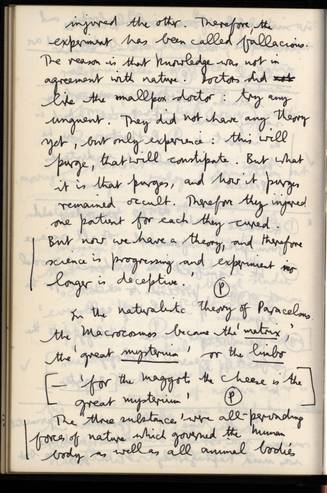 injured the other. Therefore the
experiment has been called fallacious.
The reason is that knowledge was not in
agreement with nature. Doctors did not
like the smallpox doctor : try any
unguent. They did not have any theory
yet, but only experience : this will
purge, that will constipate. But what
it is that purges, and how it purges
remained occult. Therefore they injured
one patient for each they cured.
But now we have a theory, and therefore
science is progressing and experiment no
longer is deceptive.' (P)
In the naturalistic Theory of Paracelsus
the Macrocosmos became the 'matrix',
the 'great mysterium' or the limbo
[— 'for the maggots the cheese is the
great mysterium' (P) ]
The three substances' were all-pervading
forces of nature which governed the human
body as well as all animal bodies